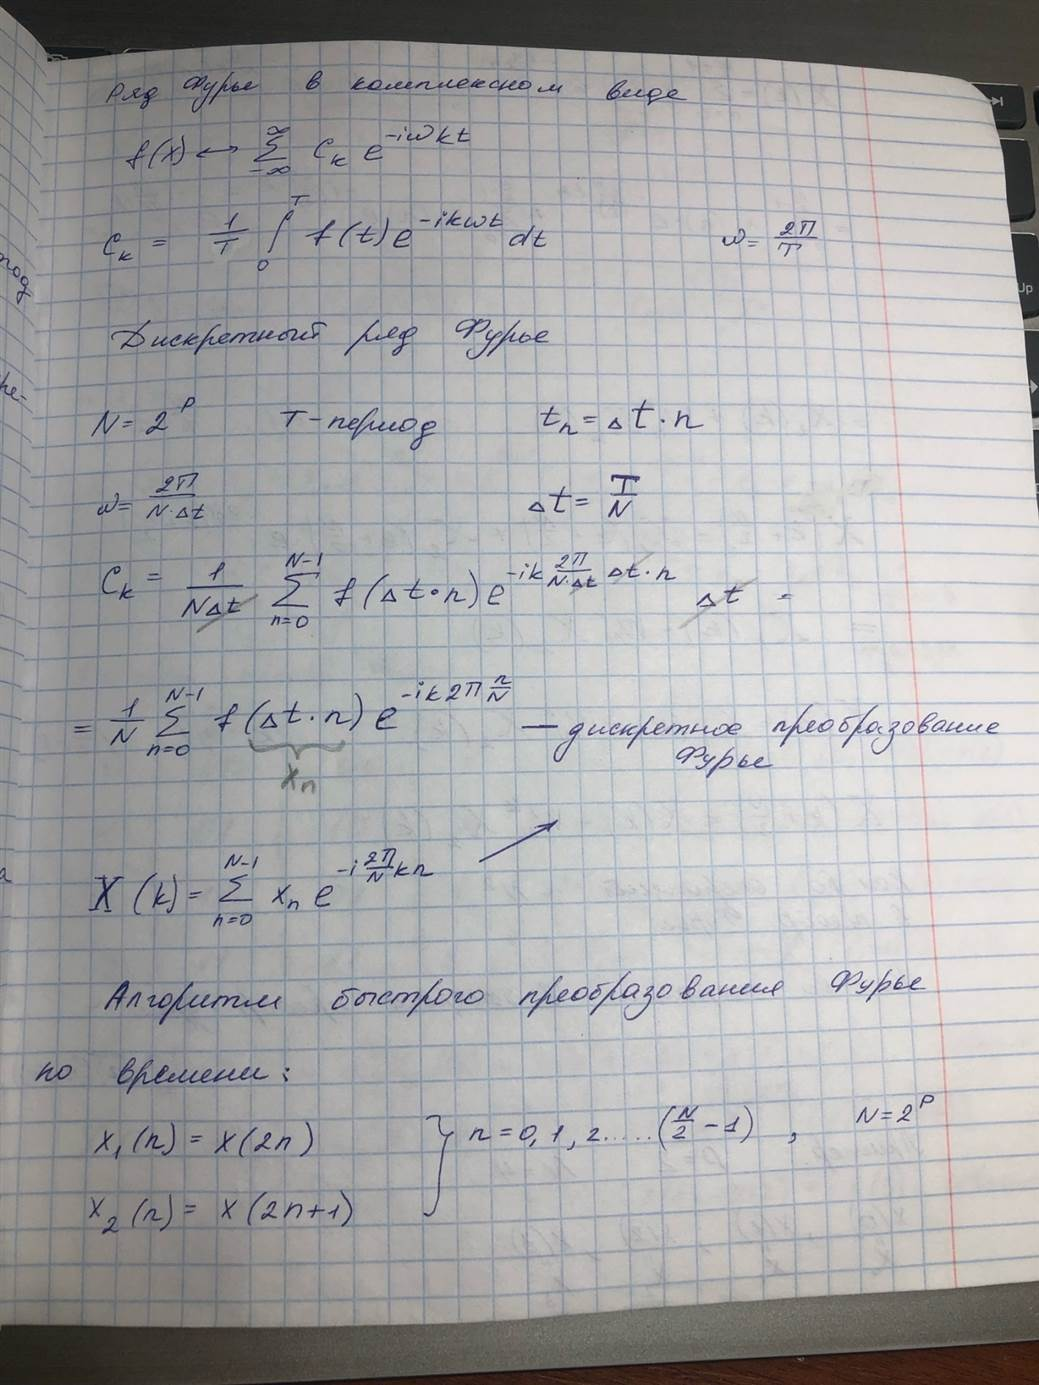 Ряд Фурье в комплексном виде
f(x) ↔ ∑_{-∞}^{∞} C_k e^{-iωkt}
C_k = 1/T ∫_0^T f(t) e^{-ikωt} dt    ω = 2π/T
Дискретный ряд Фурье
N = 2^p    T - период    t_n = Δt · n
ω = 2π/(N·Δt)    Δt = T/N
C_k = 1/(NΔt) ∑_{n=0}^{N-1} f(Δt·n) e^{-ik 2π/(N·Δt) Δt·n} Δt =
= 1/N ∑_{n=0}^{N-1} f(Δt·n) e^{-ik2π n/N} — дискретное преобразование
Фурье
x_n
X(k) = ∑_{n=0}^{N-1} x_n e^{-i 2π/N kn}
Алгоритм быстрого преобразования Фурье
по времени:
x_1(n) = x(2n)    } n = 0, 1, 2..... (N/2 - 1) ,    N = 2^p
x_2(n) = x(2n+1)
Up